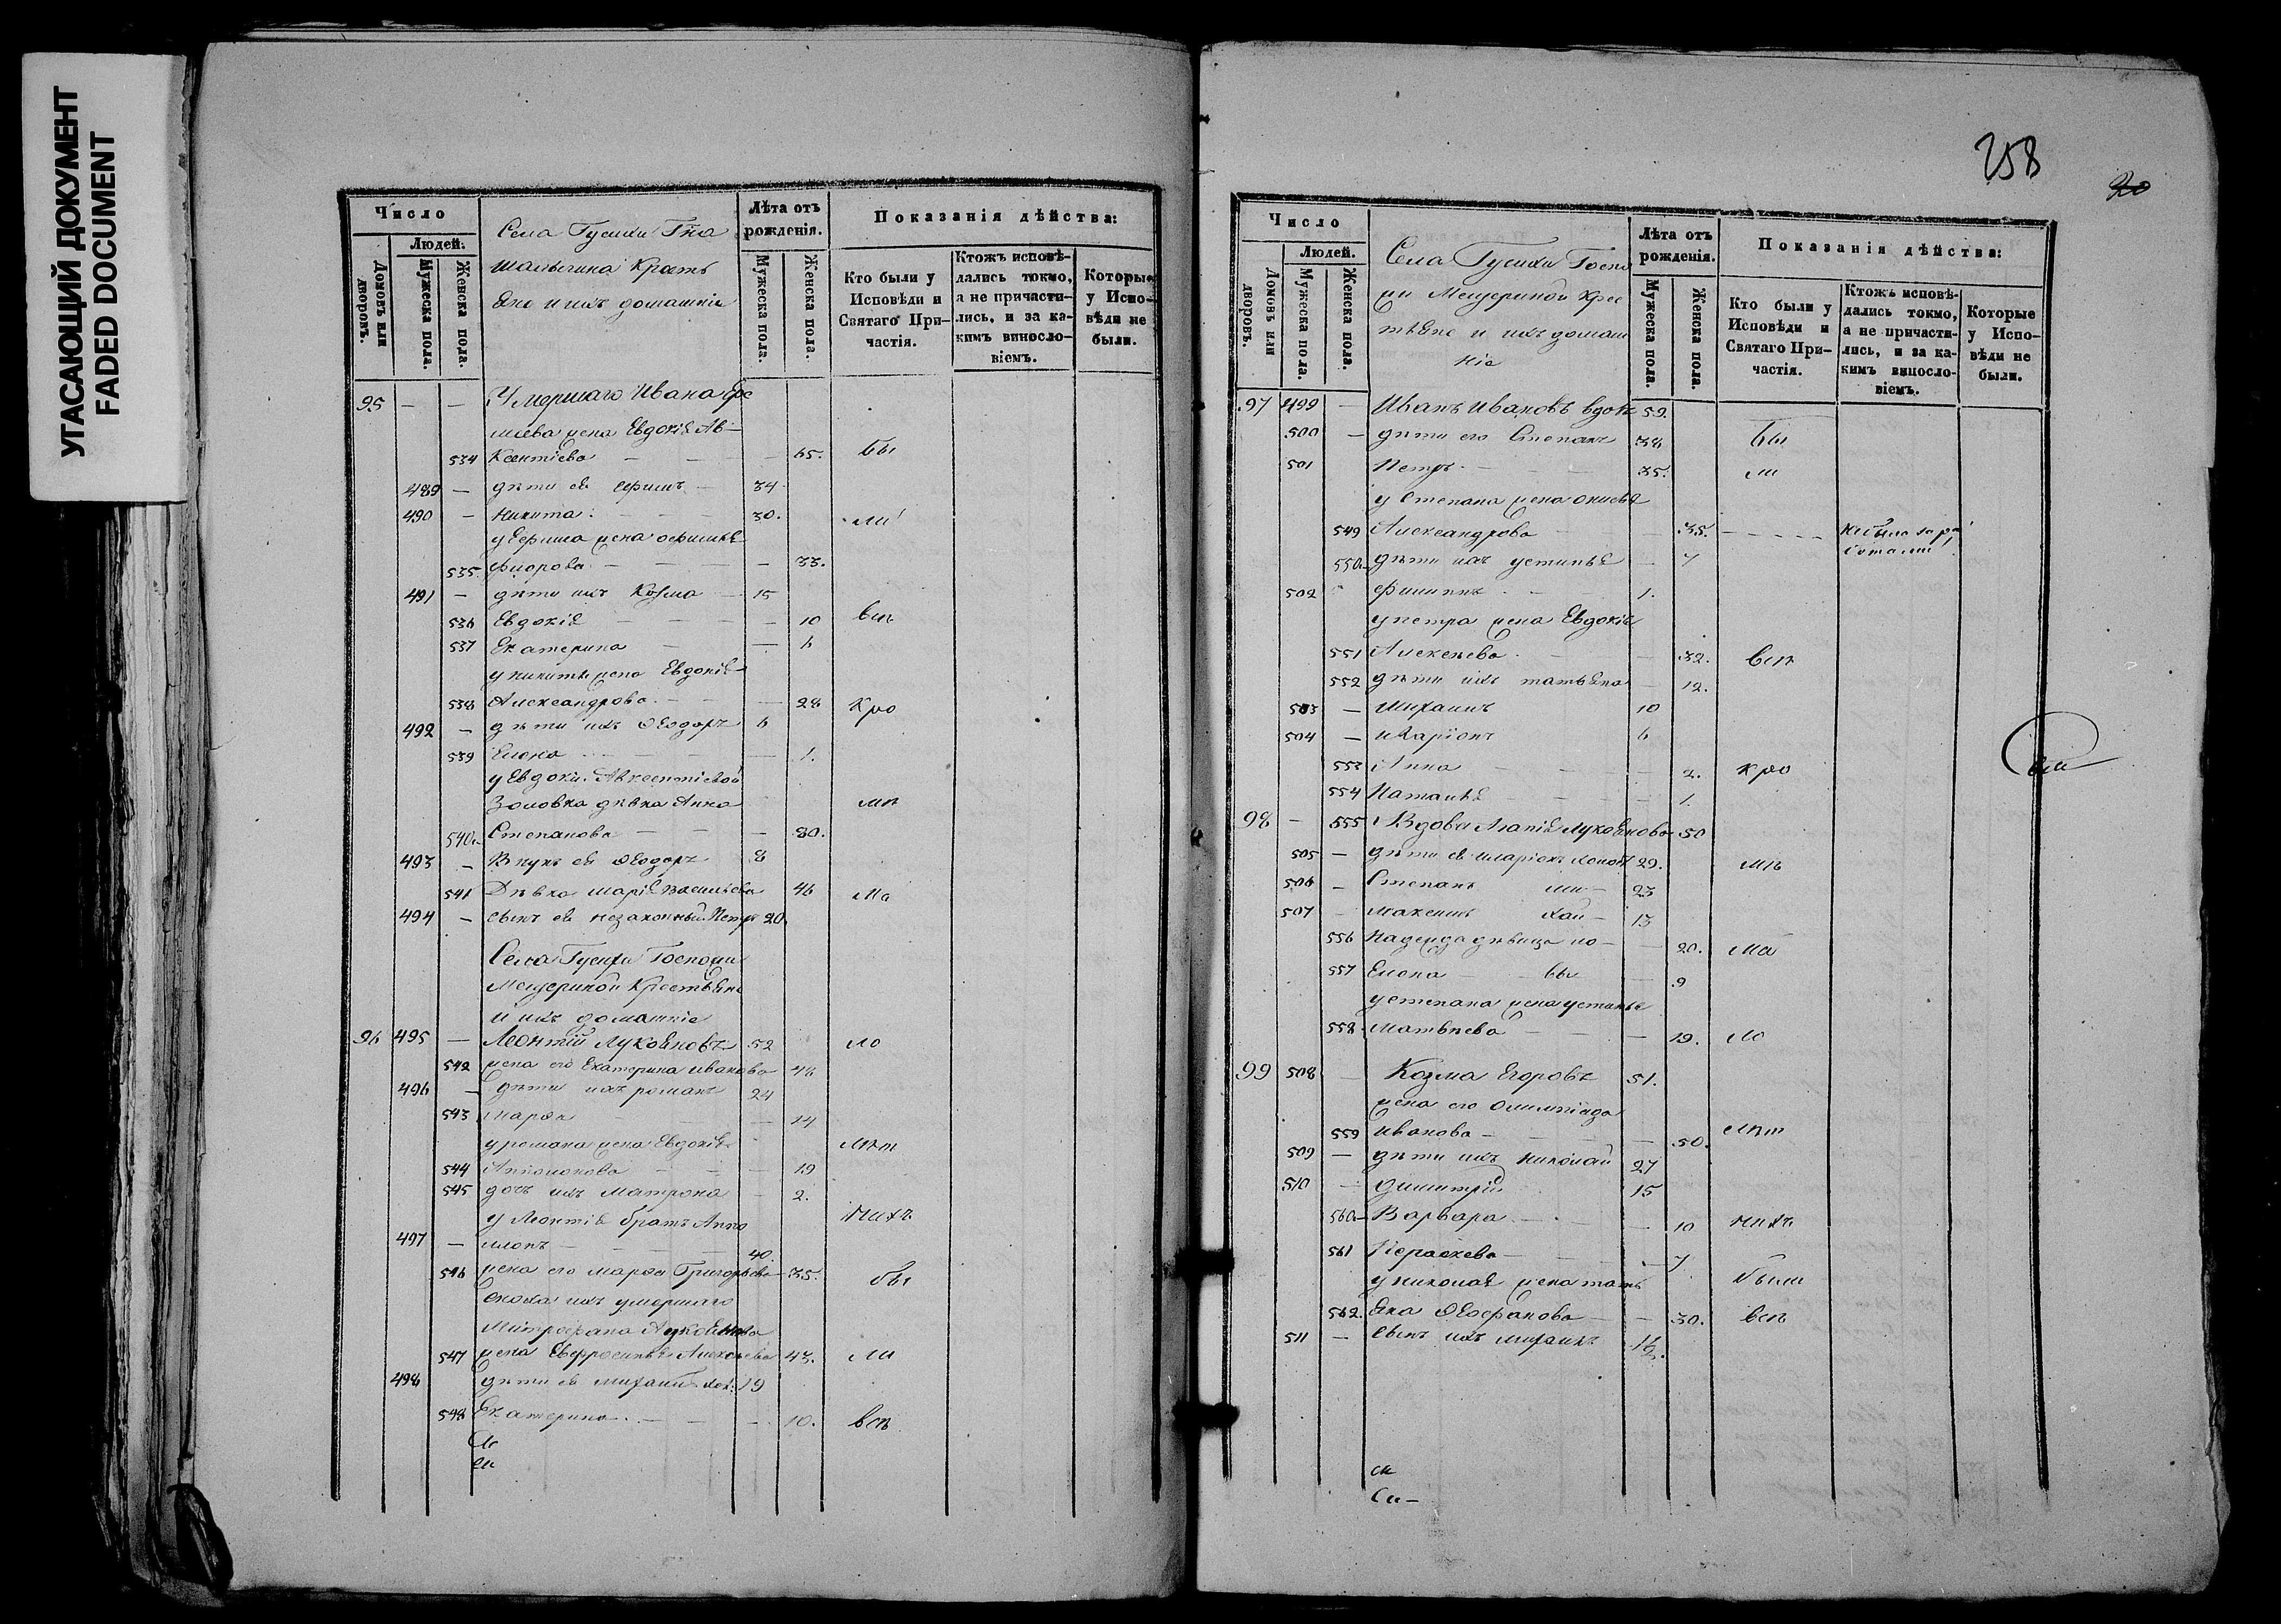 УГАСАЮЩИЙ ДОКУМЕНТ
FADED DOCUMENT
Число
Людей.
Домовъ или дворовъ.
Мужеска пола.
Женска пола.
Села Гусихи Гна
Шалыгина Кресть
яне и ихъ домашніе
Лѣта отъ рожденія.
Мужеска пола.
Женска пола.
Показанія дѣйства:
Кто были у Исповѣди и Святаго При-частія.
Ктожъ исповѣ-дались токмо, а не причасти-лись, и за ка-кимъ винословіемъ.
Которые у Испо-вѣди не были.
95 — — Умершаго Ивана
жена Евдокія Ав-
534 Ксентіева — — — 65. бы
489 — дѣти ея Ефимъ — 34
490 — Никита. 30. ли
у Ефима жена Офимья
535 Фролова — — — 33.
491 — дѣти ихъ Козма — 15
536 Евдокія — — — 10 всѣ
537 Екатерина — — 6
у Никиты жена Евдокія
538 Александрова — — 28 Кро
492 — дѣти ихъ Ѳеодоръ 6
539 Елена — — 1.
у Евдокіи Авксентіевой
золовка дѣвка Анна мѣ
540 Степанова — — — 30.
493 — Внукъ ея Ѳеодоръ 8
541 Дѣвка Марія Васильева 46 ма
494 — сынъ ея незаконный Петръ 20
Села Гусихи Госпожи
Мещериной Крестьяне
и ихъ домашніе
96 495 — Леонтій Лукояновъ 52 ло
542 жена его Екатерина Иванова 48
496 — дѣти ихъ Романъ 24
543 Марѳа — 14
у Романа жена Евдокія лѣт
544 — — — 19
545 дочь ихъ Матрона — 2.
у Леонтія братъ Апо нихъ
497 — ллонъ — — — 40.
546 жена его Марѳа Григорьева 35. бы
сноха ихъ умершаго
Митрофана Лукоянова
547 жена Евфросинья Алексѣева 43. ли
498 дѣти ея Михаилъ 19
548 Екатерина — — — 10. всѣ
258
20
Число
Людей.
Домовъ или дворовъ.
Мужеска пола.
Женска пола.
Села Гусихи Госпо
жи Мещериной Крес
тьяне и ихъ домаш
ніе
Лѣта отъ рожденія.
Мужеска пола.
Женска пола.
Показанія дѣйства:
Кто были у Исповѣди и Святаго При-частія.
Ктожъ исповѣ-дались токмо, а не причасти-лись, и за ка-кимъ винословіемъ.
Которые у Испо-вѣди не были.
97 499 — Иванъ Ивановъ вдовъ 59.
500 — дѣти его Степанъ 38 бы
501 Петръ — 35. ли
у Степана жена
549 Александрова — 35. — — — — —
550 дѣти ихъ Устинья — 7
502 Филиппъ — 1.
у Петра жена Евдокія
551 Алексѣева — 32. всѣ
552 дѣти ихъ Татьяна — 12.
503 — Михаилъ 10
504 — Иларіонъ 6
553 Анна — — — 2. кро
554 Наталья — — — 1.
98 — 555 Вдова Агапія Лукоянова 50
505 — дѣти ея Иларіонъ 29. мѣ
506 — Степанъ ми — 23
507 — Максимъ хай — 13
556 Надежда дѣвица ло — 20. ма
557 Елена — вы — 9
у Степана жена Устинья
558 Матвѣева — — — 19. ло
99 508 — Козма Егоровъ 51.
жена его Олимпіада
559 Иванова — — 50. лѣт
509 — дѣти ихъ Николай 27
510 — Димитрій 15
560 Варвара — — 10 нихъ
561 Параскева — — 7
у Николая жена Тать были
562. яна Ѳеофанова — — 30. всѣ
511 — сынъ ихъ Михаилъ 1/2.